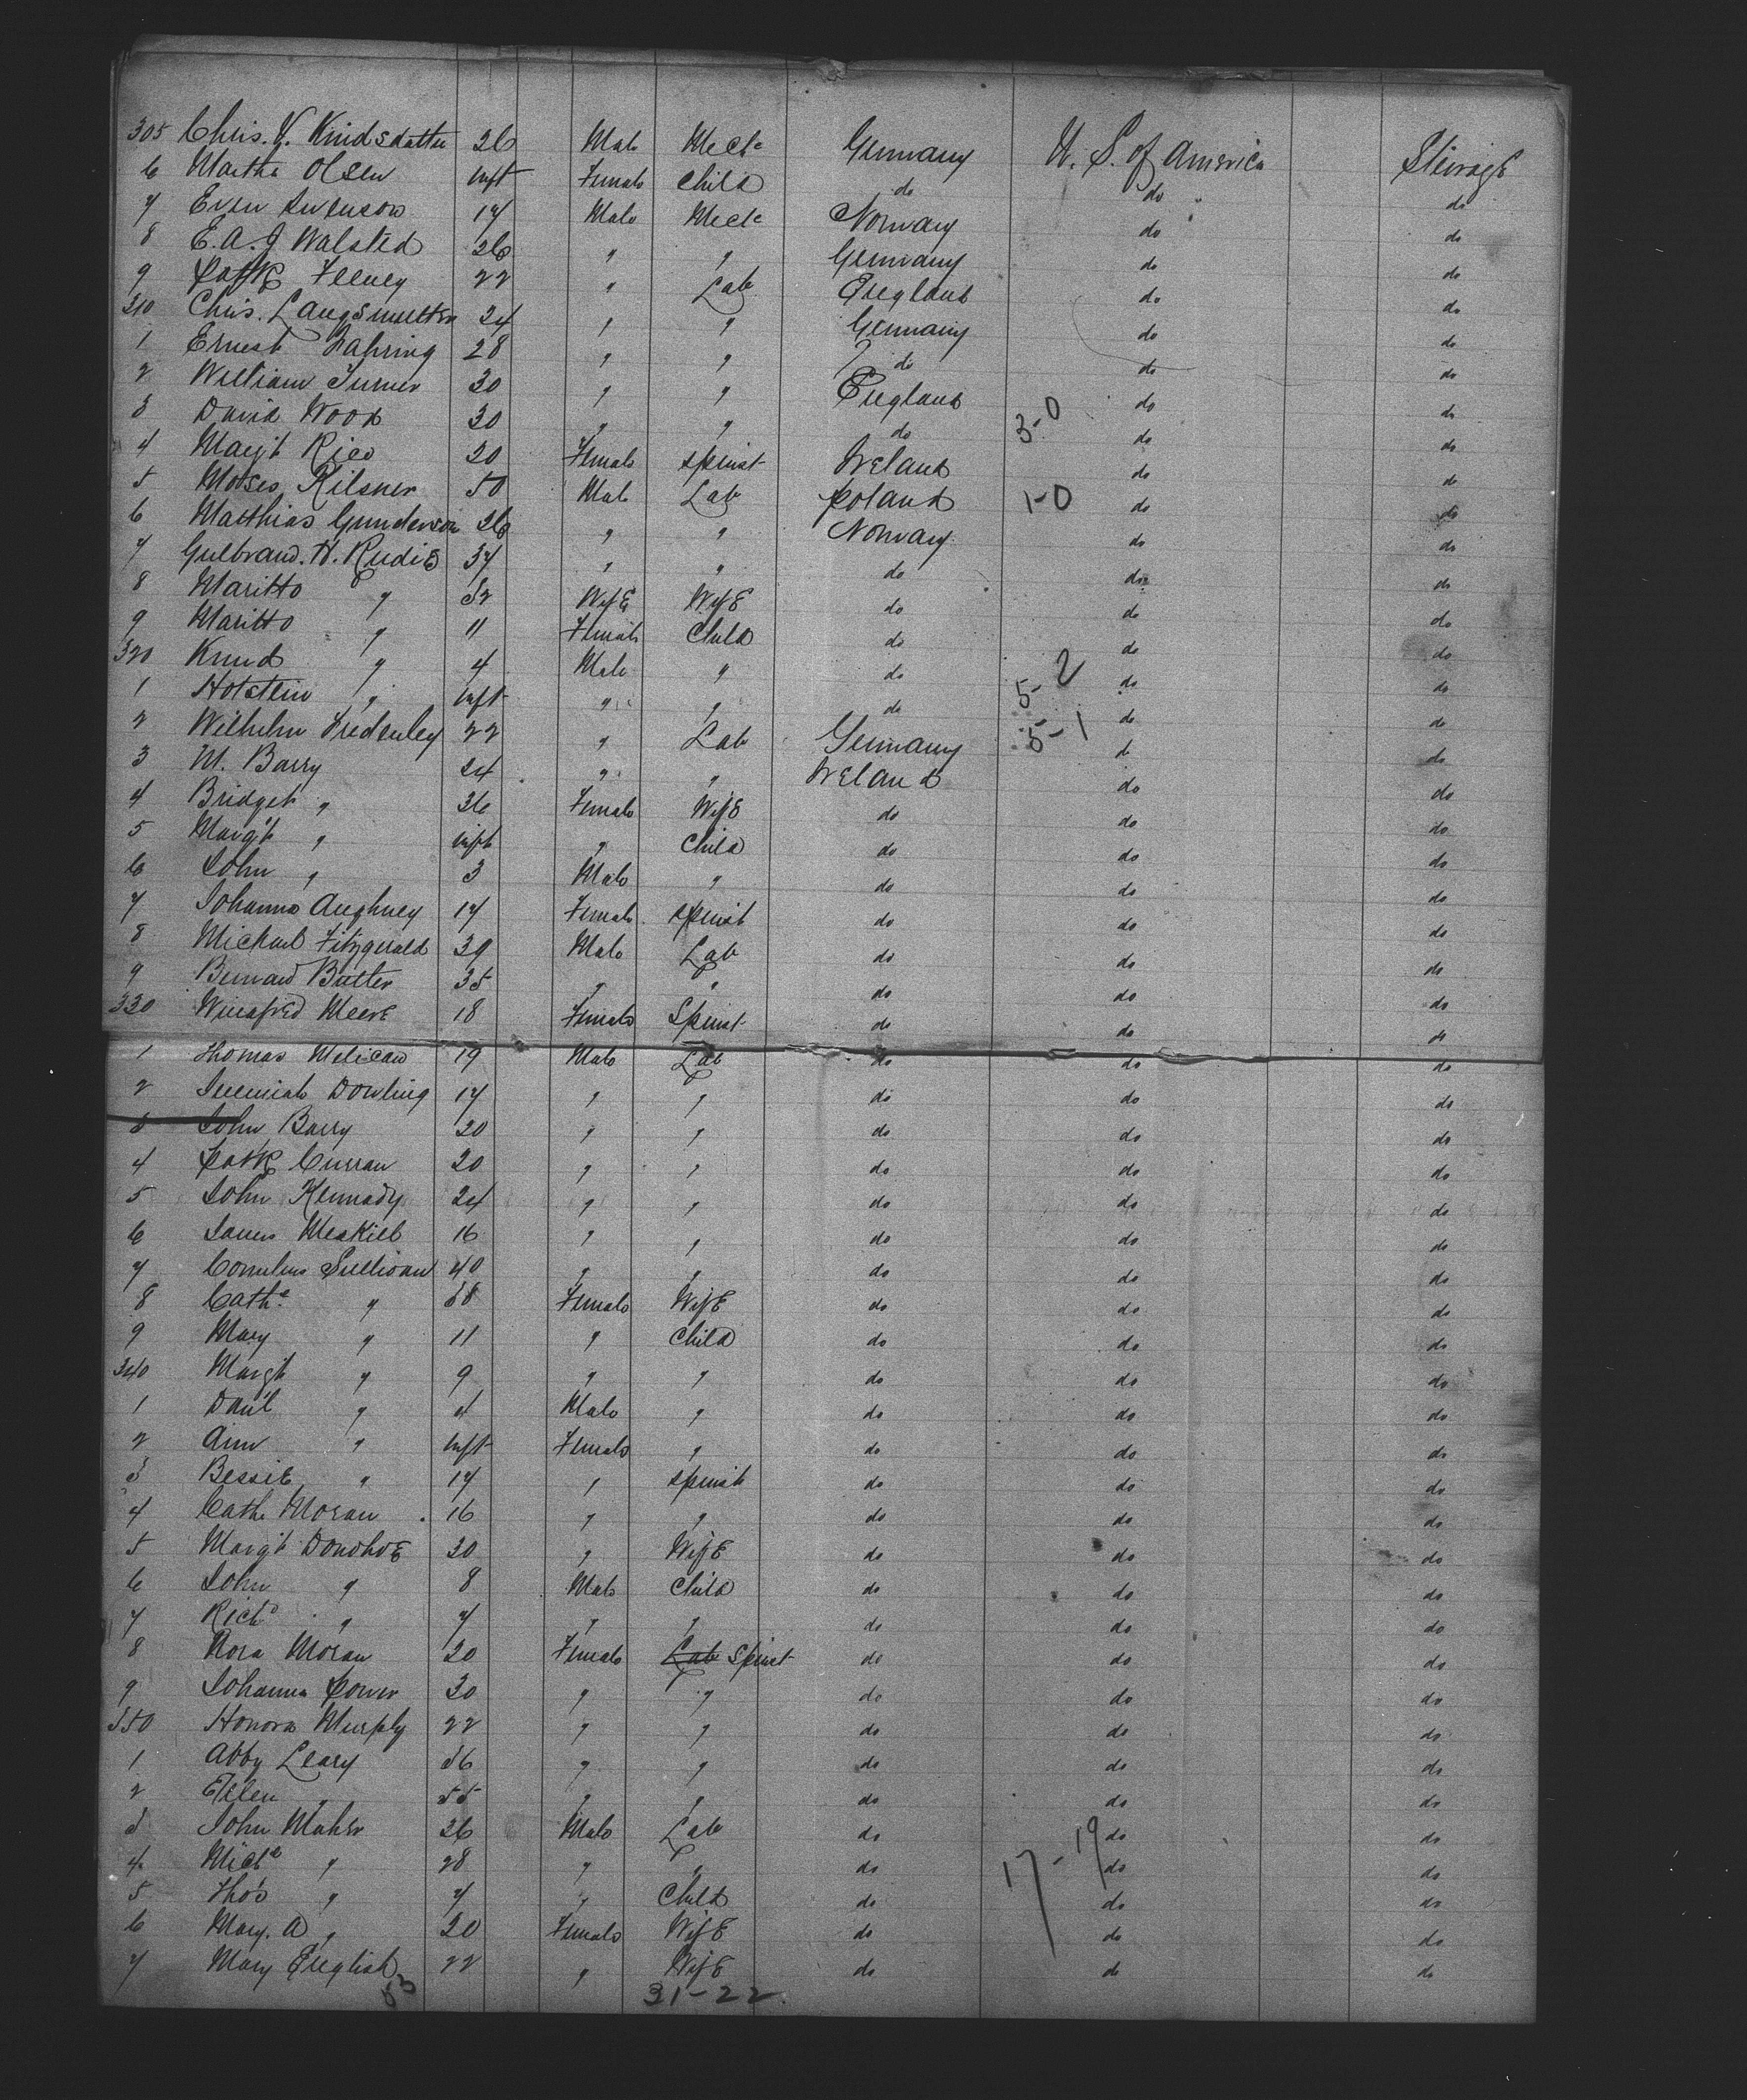 305 Chris. K. Knudsdatter 26 Male Mech Germany U. S. of America Steerage
6 Martha Olsen inft Female Child do do do
7 Even Swenson 17 Male Mech Norway do do
8 E. A. J Walsted 26 " " Germany do do
9 Patk Feeney 22 " Lab England do do
310 Chris. Langsmutter 24 " " Germany do do
1 Ernest Fahring 28 " " do do do
2 William Turner 30 " " England do do
3 David Wood 30 " " do 3-0 do do
4 Margt Rico 20 Female Spinst Ireland do do
5 Moses Kilsner 50 Male Lab Poland 1-0 do do
6 Matthias Gunderson 26 " " Norway do do
7 Gulbrand. H. Rudie 37 " " do do do
8 Maritto " 32 Wife Wife do do do
9 Maritto " 11 Female Child do do do
320 Knud " 4 Male " do 5-2 do do
1 Holstein " inft " " do do do
2 Wilhelm Fredenley 22 " Lab Germany 5-1 do do
3 M. Barry 24 " " Ireland do do
4 Bridget " 26 Female Wife do do do
5 Margt " inft " Child do do do
6 John " 3 Male " do do do
7 Johanna Aughney 17 Female Spinst do do do
8 Michael Fitzgerald 39 Male Lab do do do
9 Bernard Butter 35 " " do do do
330 Winefred Meere 18 Female Spinst do do do
1 Thomas Melican 19 Male Lab do do do
2 Jeremiah Dowling 17 " " do do do
3 John Barry 20 " " do do do
4 Patk Curran 20 " " do do do
5 John Kennady 24 " " do do do
6 James Meskill 16 " " do do do
7 Cornelius Sullivan 40 " " do do do
8 Cathe " 38 Female Wife do do do
9 Mary " 11 " Child do do do
340 Margt " 9 " " do do do
1 Danl " 4 Male " do do do
2 Ann " inft Female " do do do
3 Bessie " 17 " Spinst do do do
4 Cathe Moran 16 " " do do do
5 Margt Donohoe 30 " Wife do do do
6 John " 8 Male Child do do do
7 Richd " 7 " " do do do
8 Nora Moran 20 Female Lab Spinst do do do
9 Johanna Power 30 " " do do do
350 Honora Murphy 22 " " do do do
1 Abby Leary 36 " " do do do
2 Ellen " 55 " " do do do
3 John Maher 26 Male Lab do do do
4 Michl " 28 " " do 17-19 do do
5 Thos " 7 " Child do do do
6 Mary. A " 20 Female Wife do do do
7 Mary English 22 " Wife do do do
53 31-22